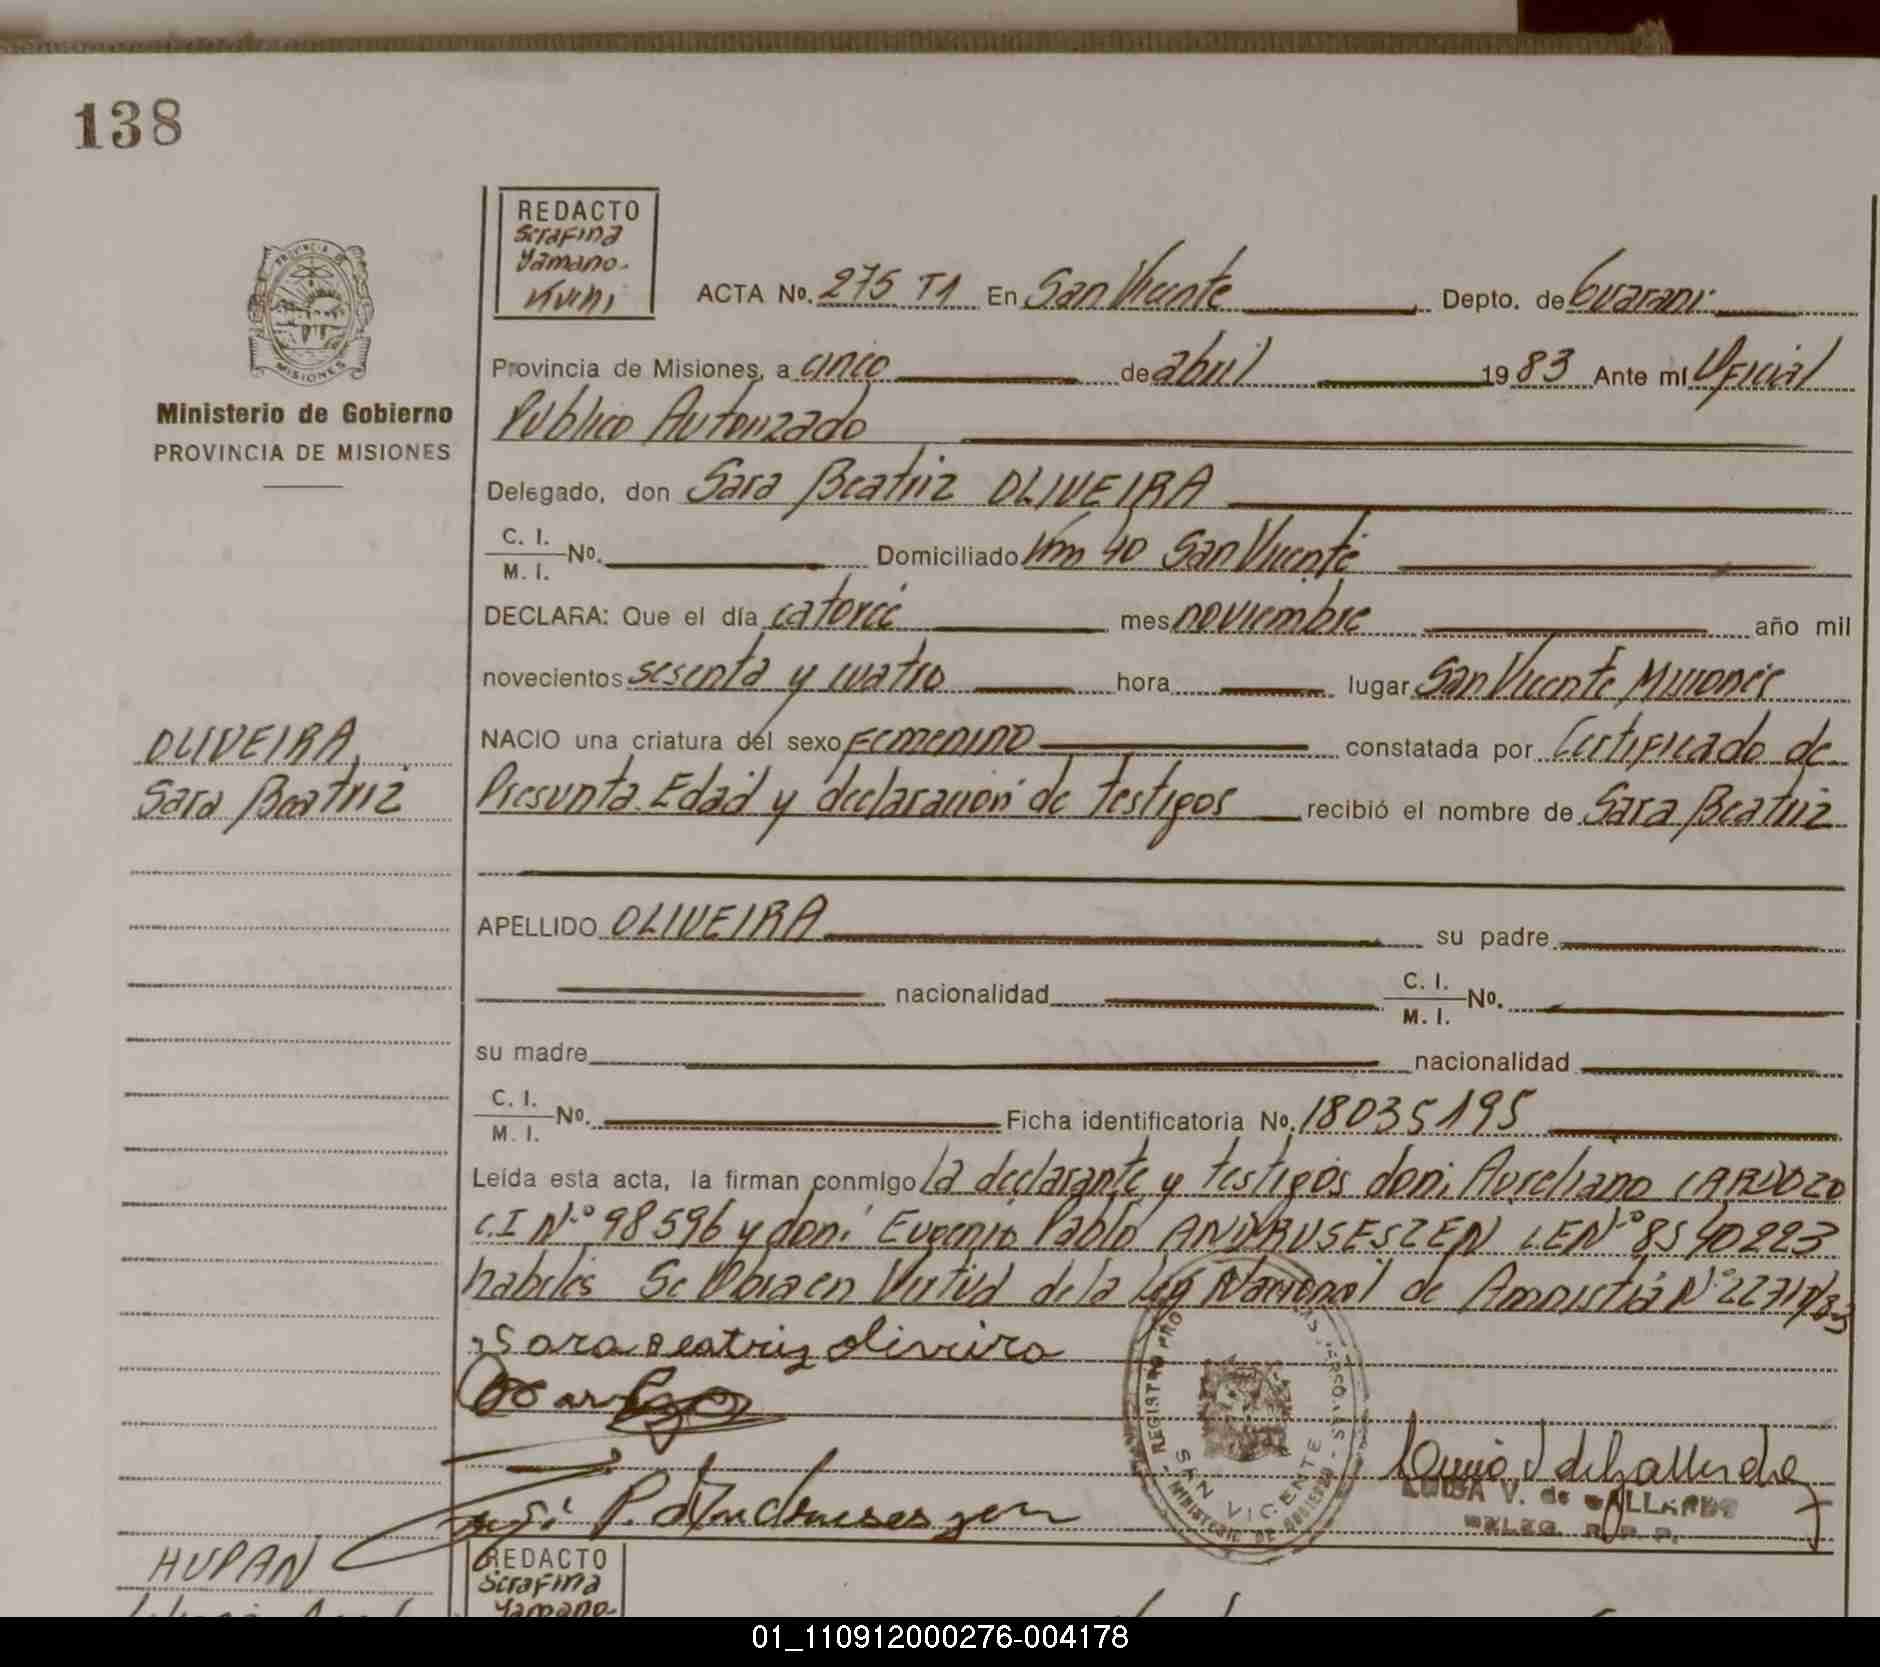 138
REDACTO
Serafina
Yamano-
Kuchi
PROVINCIA DE
MISIONES
Ministerio de Gobierno
PROVINCIA DE MISIONES
ACTA No. 275 T1 En San Vicente Depto. de Guarani
Provincia de Misiones, a cinco de abril 1983 Ante mí Oficial
Publico Autorizado
Delegado, don Sara Beatriz OLIVEIRA
C. I.
M. I. No. Domiciliado Km 40 San Vicente
DECLARA: Que el día catorce mes noviembre año mil
novecientos sesenta y cuatro hora lugar San Vicente Misiones
NACIO una criatura del sexo Femenino constatada por Certificado de
Presunta Edad y declaracion de testigos recibió el nombre de Sara Beatriz
OLIVEIRA,
Sara Beatriz
APELLIDO OLIVEIRA su padre
nacionalidad C. I.
M. I. No.
su madre nacionalidad
C. I.
M. I. No. Ficha identificatoria No. 18035195
Leída esta acta, la firman conmigo la declarante y testigos don: Aureliano CARDOZO
C.I Nº 98596 y don: Eugenio Pablo ANDRUSESZEN L.E Nº 8540223
habiles Se Obra en Virtud de la Ley Nacional de Amnistia Nº
Sara Beatriz Oliveira
P. Andruseszen
REGISTRO PRO
SAN VICENTE
MINISTERIO DE GOBIERNO
LUISA V. de GALLARDO
DELEG. R. P. P.
HUPAN
REDACTO
Serafina
Yamano-
01_110912000276-004178